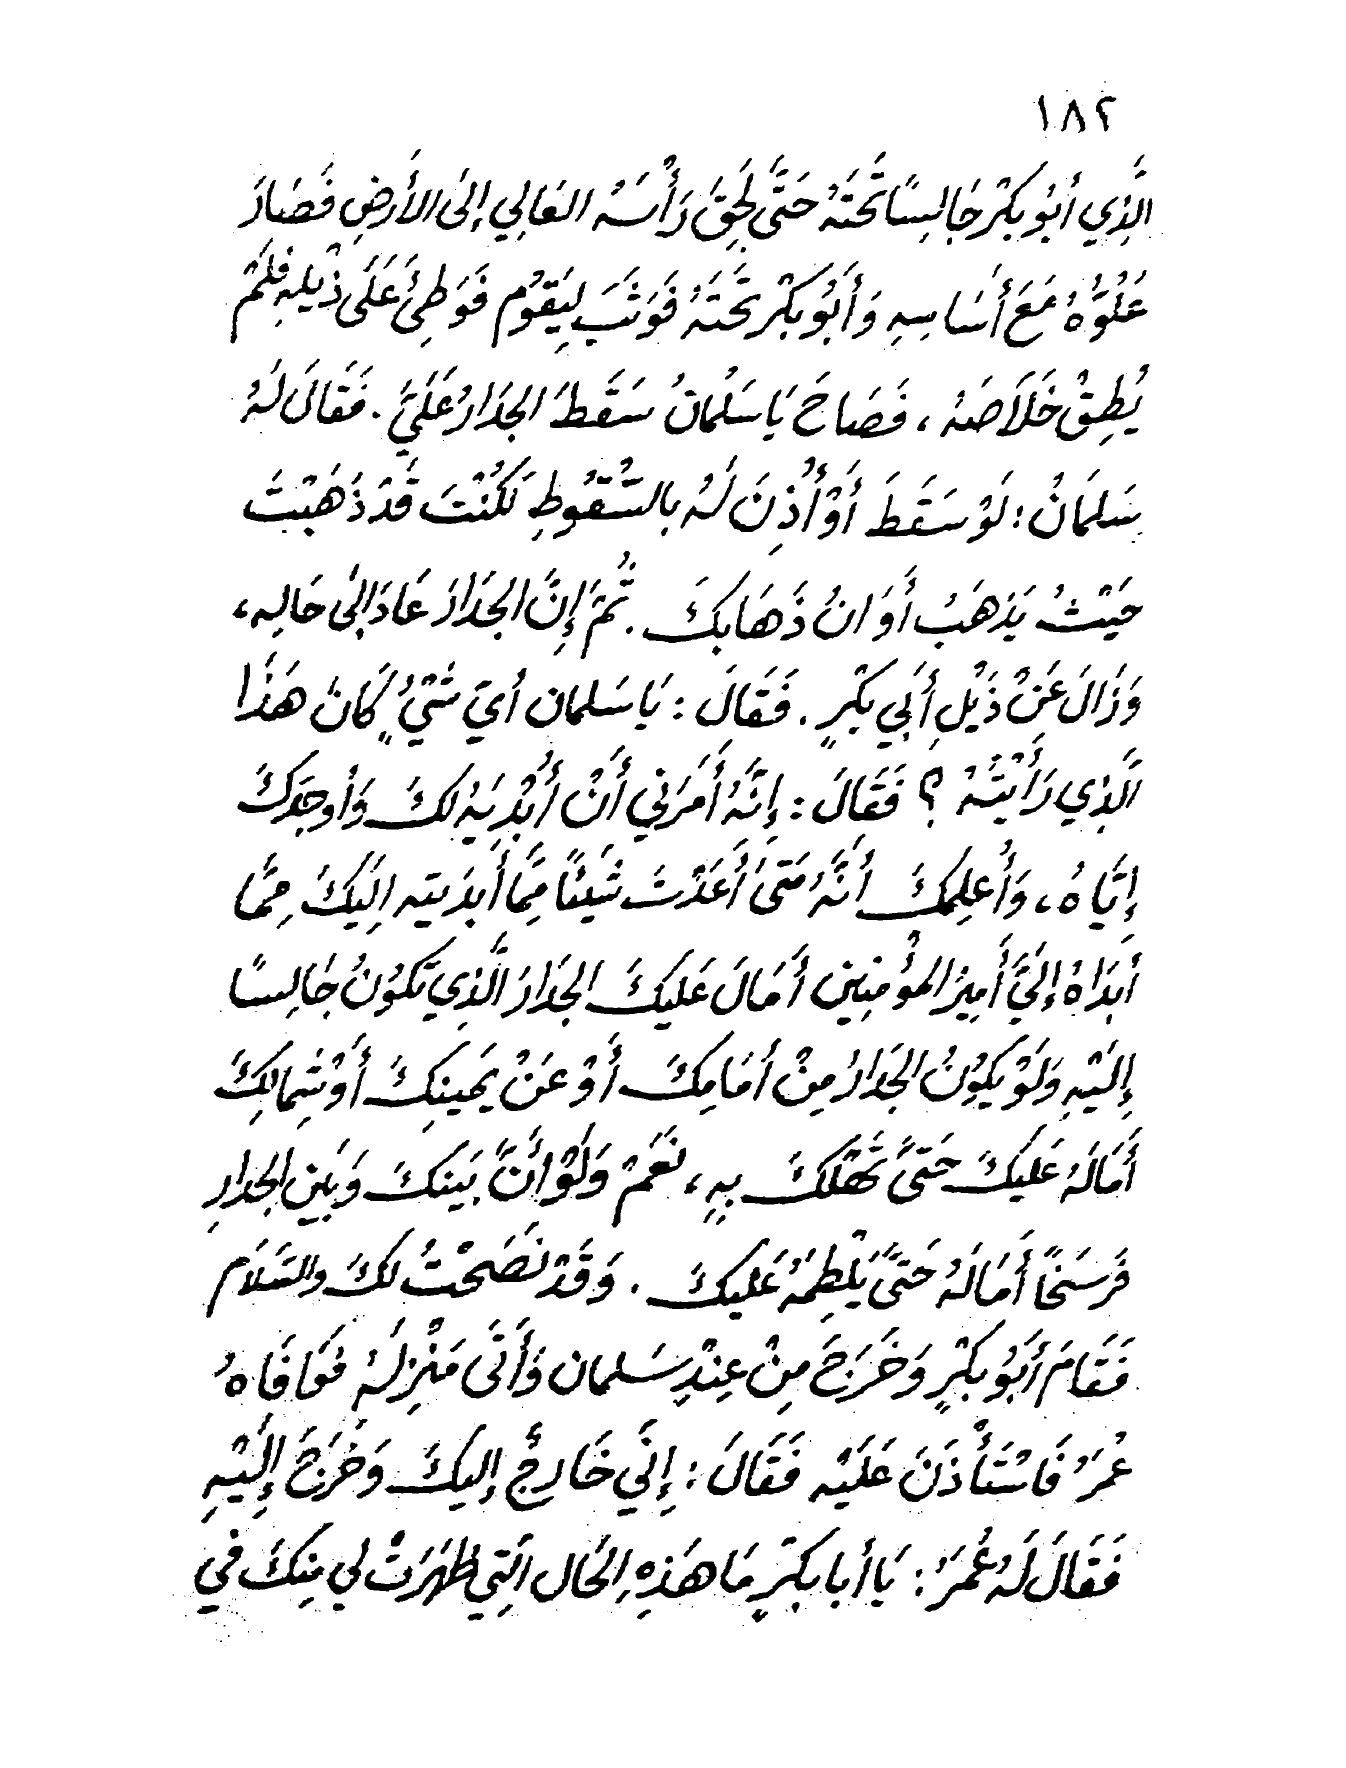 ١٨٢
الَّذِي أَبُو بَكْرٍ جَالِسًا تَحْتَهُ حَتَّى لَحِقَ رَأْسَهُ العَالِي إِلَى الأَرْضِ فَصَارَ
عُلُوُّهُ مَعَ أَسَاسِهِ وَأَبُو بَكْرٍ تَحْتَهُ فَوَثَبَ لِيَقُومَ فَوَطِئَ عَلَى ذَيْلِهِ فَلَمْ
يُطِقْ خَلَاصَهُ ، فَصَاحَ يَا سَلْمَانُ سَقَطَ الجِدَارُ عَلَيَّ . فَقَالَ لَهُ
سَلمَانُ : لَوْ سَقَطَ أَوْ أُذِنَ لَهُ بِالسُّقُوطِ لَكُنْتَ قَدْ ذَهَبْتَ
حَيْثُ يَذهَبُ أَوَانُ ذَهَابِكَ . ثُمَّ إِنَّ الجِدَارَ عَادَ إِلَى حَالِهِ ،
وَزَالَ عَنْ ذَيْلِ أَبِي بَكْرٍ . فَقَالَ : يَا سَلمان أيّ شَيْءٍ كَانَ هَذَا
الَّذِي رَأَيْتُهُ ؟ فَقَالَ : إِنَّهُ أَمَرَنِي أَنْ أُبْدِيَهُ لكَ وَأُوجِدَكَ
إِيَّاهُ ، وَأُعلِمكَ أَنَّهُ مَتَى أَعَدْتَ شَيْئًا مِمَّا أَبدَيته إِلَيكَ مِمَّا
أَبدَاهُ إِلَيَّ أَمِيرُ المؤمِنِين أَمَالَ عَلَيكَ الجِدَارَ الَّذِي تَكُونُ جَالِسًا
إِلَيْهِ وَلَوْ يَكُونُ الجِدَارُ مِنْ أَمَامِكَ أَوْ عَنْ يَمِينِكَ أَوْ شِمَالِكَ
أَمَالَهُ عَلَيكَ حَتَّى تَهْلكَ بِهِ ، نَعَمْ وَلَوْ أَنَّ بَينَكَ وَبَيْنِ الجِدَارِ
فَرسَخًا أَمَالَهُ حَتَّى يَلْطِمَهُ عَلَيكَ . وَقَدْ نَصَحْتُ لَكَ والسَّلَام
فَقَامَ أَبُو بَكْرٍ وَخَرَجَ مِنْ عِنْدِ سَلمان وَأَتَى مَنْزِلَهُ فَوَافَاهُ
عُمَرُ فَاسْتَأْذَنَ عَلَيْهِ فَقَالَ : إِنِّي خَارِجٌ إِلَيكَ وَخَرَجَ إِلَيْهِ
فَقَالَ لَهُ عُمَرُ : يَا أَبا بَكْرٍ مَا هَذِهِ الحَال الَّتِي ظَهَرَتْ لِي مِنكَ فِي